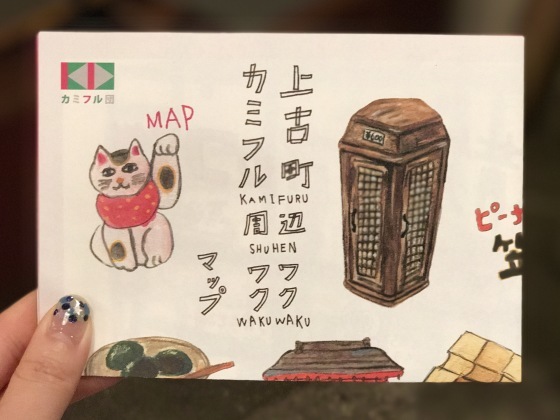 カミフル団
MAP
上古町
カミフル
KAMIFURU
周辺
SHUHEN
ワクワク
WAKUWAKU
マップ
¥600
ピーナ